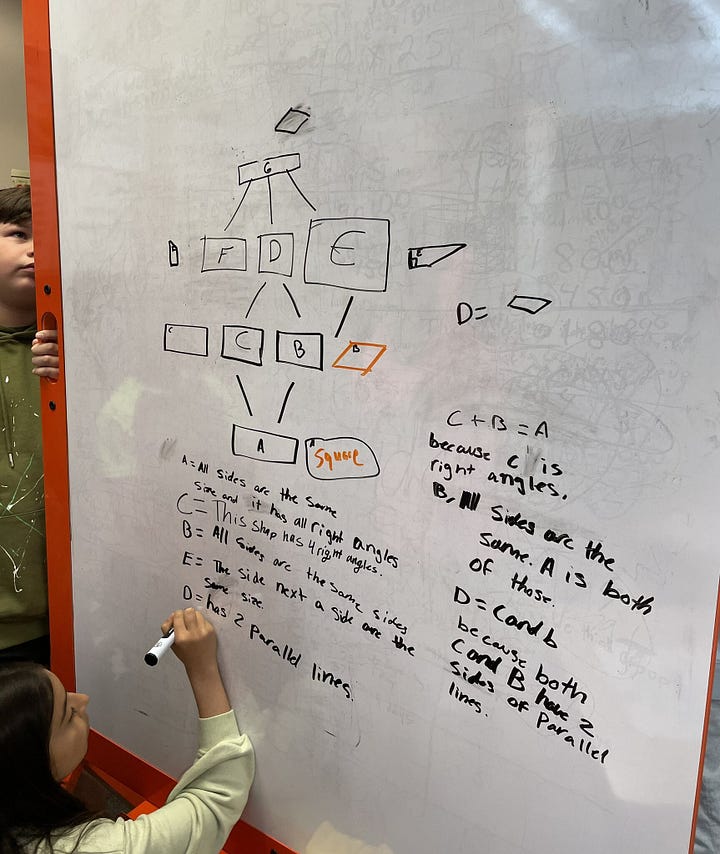 G
F D E
D=
C
C B B
A A Square
A = All sides are the same
size and it has all right angles
C = This shap has 4 right angles.
B = All sides are the same sides
E = The side next a side are the
same size.
D = has 2 Parallel lines.
C + B = A
because C is
right angles.
B, All sides are the
same. A is both
of those.
D = C and b
because both
C and B have 2
sides of Parallel
lines.